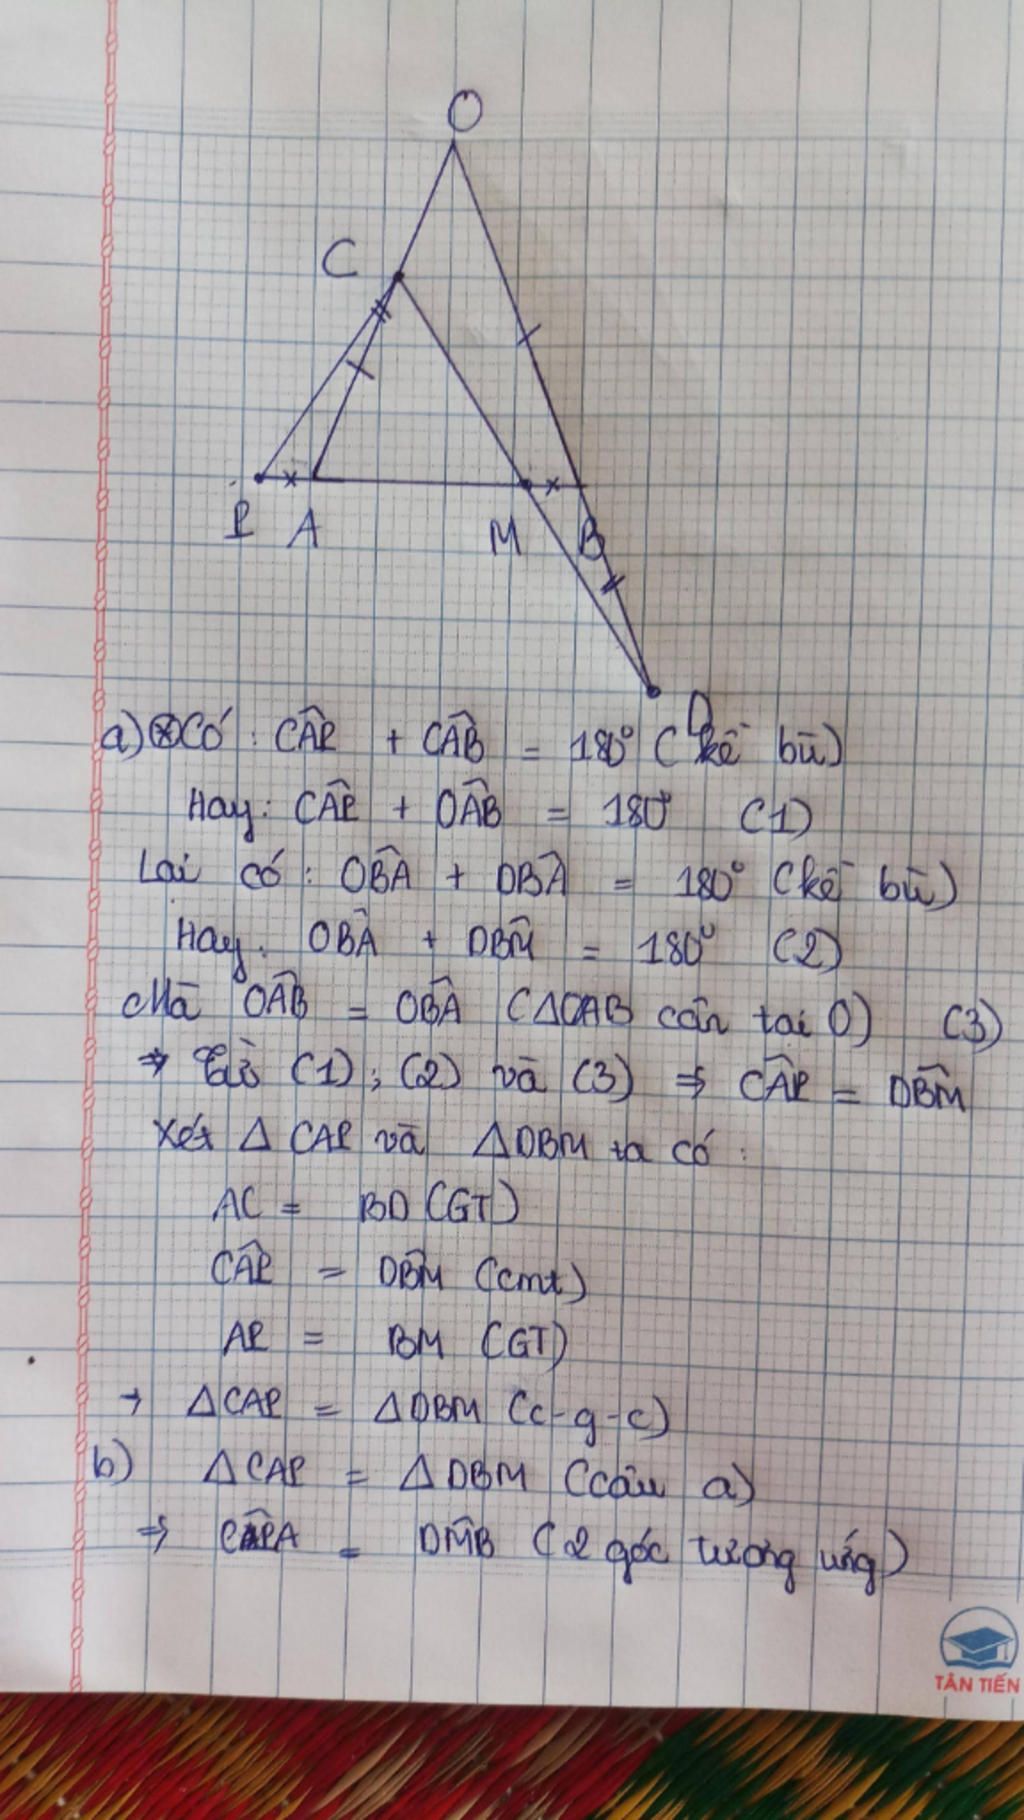 O
C
P A M B
D
a) ⊛ Có : CÂP + CÂB = 180° (kề bù)
Hay: CÂP + OÂB = 180° (1)
Lại có : OB̂A + DB̂A = 180° (kề bù)
Hay: OB̂A + DB̂M = 180° (2)
Mà OÂB = OB̂A (ΔOAB cân tại O) (3)
⇒ Từ (1) ; (2) và (3) ⇒ CÂP = DB̂M
Xét Δ CAP và ΔDBM ta có :
AC = BD (GT)
CÂP = DB̂M (cmt)
AP = BM (GT)
→ ΔCAP = ΔDBM (c-g-c)
b) ΔCAP = ΔDBM (câu a)
⇒ CP̂A = DM̂B (2 góc tương ứng)
TÂN TIẾN